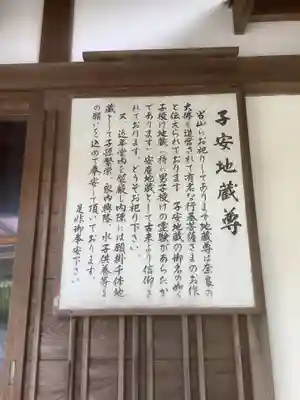 子安地蔵尊
当山にお祀りしてあります地蔵尊は奈良の
大佛を造営されて有名な行基菩薩さまのお作
と伝えられております 子安地蔵の御名の如く
子授け地蔵 特に男子授けの霊験があらたか
であります 安産地蔵として古来より信仰さ
れております。どうぞお祀り下さい。
又 近年堂内を整厳し内陣には願掛千体地
蔵として子孫繁栄、家内興隆、水子供養等々
の願いを込めて奉安して頂いております。
是非御奉安下さい